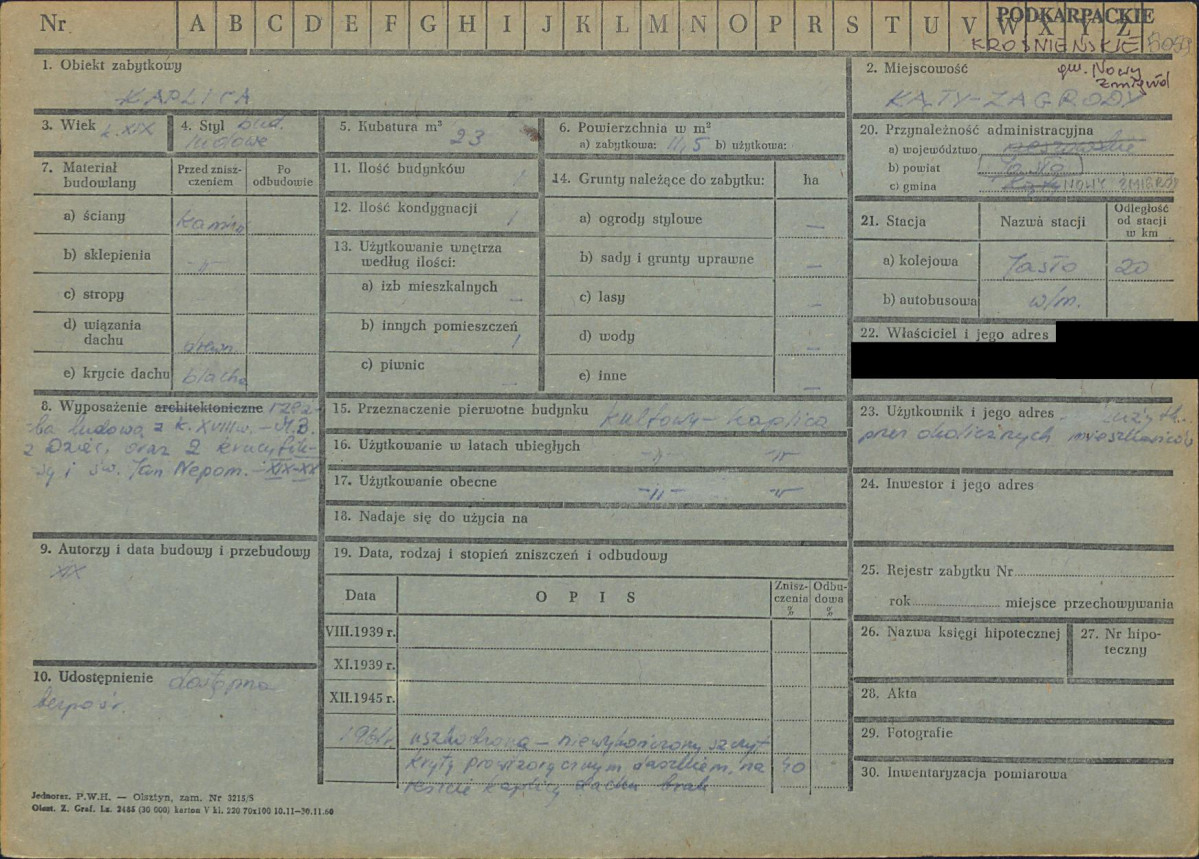 Nr A B C D E F G H I J K L M N O P R S T U V W X Y Z PODKARPACKIE
KROŚNIEŃSKIE
1. Obiekt zabytkowy
KAPLICA
2. Miejscowość gm. Nowy Żmigród
KĄTY-ZAGRODY
3. Wiek k. XIX
4. Styl bud. ludowe
5. Kubatura m³ 23
6. Powierzchnia w m²
a) zabytkowa: 11,5 b) użytkowa:
7. Materiał budowlany
Przed zniszczeniem
Po odbudowie
a) ściany kamień
b) sklepienia -„-
c) stropy
d) wiązania dachu drewn.
e) krycie dachu blacha
8. Wyposażenie architektoniczne rzeź-
ba ludowa z k. XVIII w. - M.B.
z Dziec. oraz 2 krucyfik-
sy i św. Jan Nepom. - XIX-XX
9. Autorzy i data budowy i przebudowy
XIX
10. Udostępnienie dostępna
bezpośr.
11. Ilość budynków 1
12. Ilość kondygnacji 1
13. Użytkowanie wnętrza według ilości:
a) izb mieszkalnych —
b) innych pomieszczeń 1
c) piwnic —
14. Grunty należące do zabytku: ha
a) ogrody stylowe —
b) sady i grunty uprawne —
c) lasy —
d) wody —
e) inne —
15. Przeznaczenie pierwotne budynku kultowy - kaplica
16. Użytkowanie w latach ubiegłych -„- -„-
17. Użytkowanie obecne -„- -„-
18. Nadaje się do użycia na
19. Data, rodzaj i stopień zniszczeń i odbudowy
Data
OPIS
Zniszczenia %
Odbudowa %
VIII.1939 r.
XI.1939 r.
XII.1945 r.
uszkodzona - niewykończony szczyt
kryty prowizorycznym daszkiem, na 40
reszcie kaplicy dachu brak
20. Przynależność administracyjna
a) województwo rzeszowskie
b) powiat Jasło
c) gmina Kąty NOWY ŻMIGRÓD
21. Stacja
Nazwa stacji
Odległość od stacji w km
a) kolejowa Jasło 20
b) autobusowa w/m.
22. Właściciel i jego adres
23. Użytkownik i jego adres - użytk.
przez okolicznych mieszkańców
24. Inwestor i jego adres
25. Rejestr zabytku Nr
rok miejsce przechowywania
26. Nazwa księgi hipotecznej
27. Nr hipoteczny
28. Akta
29. Fotografie
30. Inwentaryzacja pomiarowa
Jednoraz. P.W.H. — Olsztyn, zam. Nr 3215/5
Olszt. Z. Graf. Lz. 2488 (30 000) karton V kl. 220 70x100 10.11—30.11.60